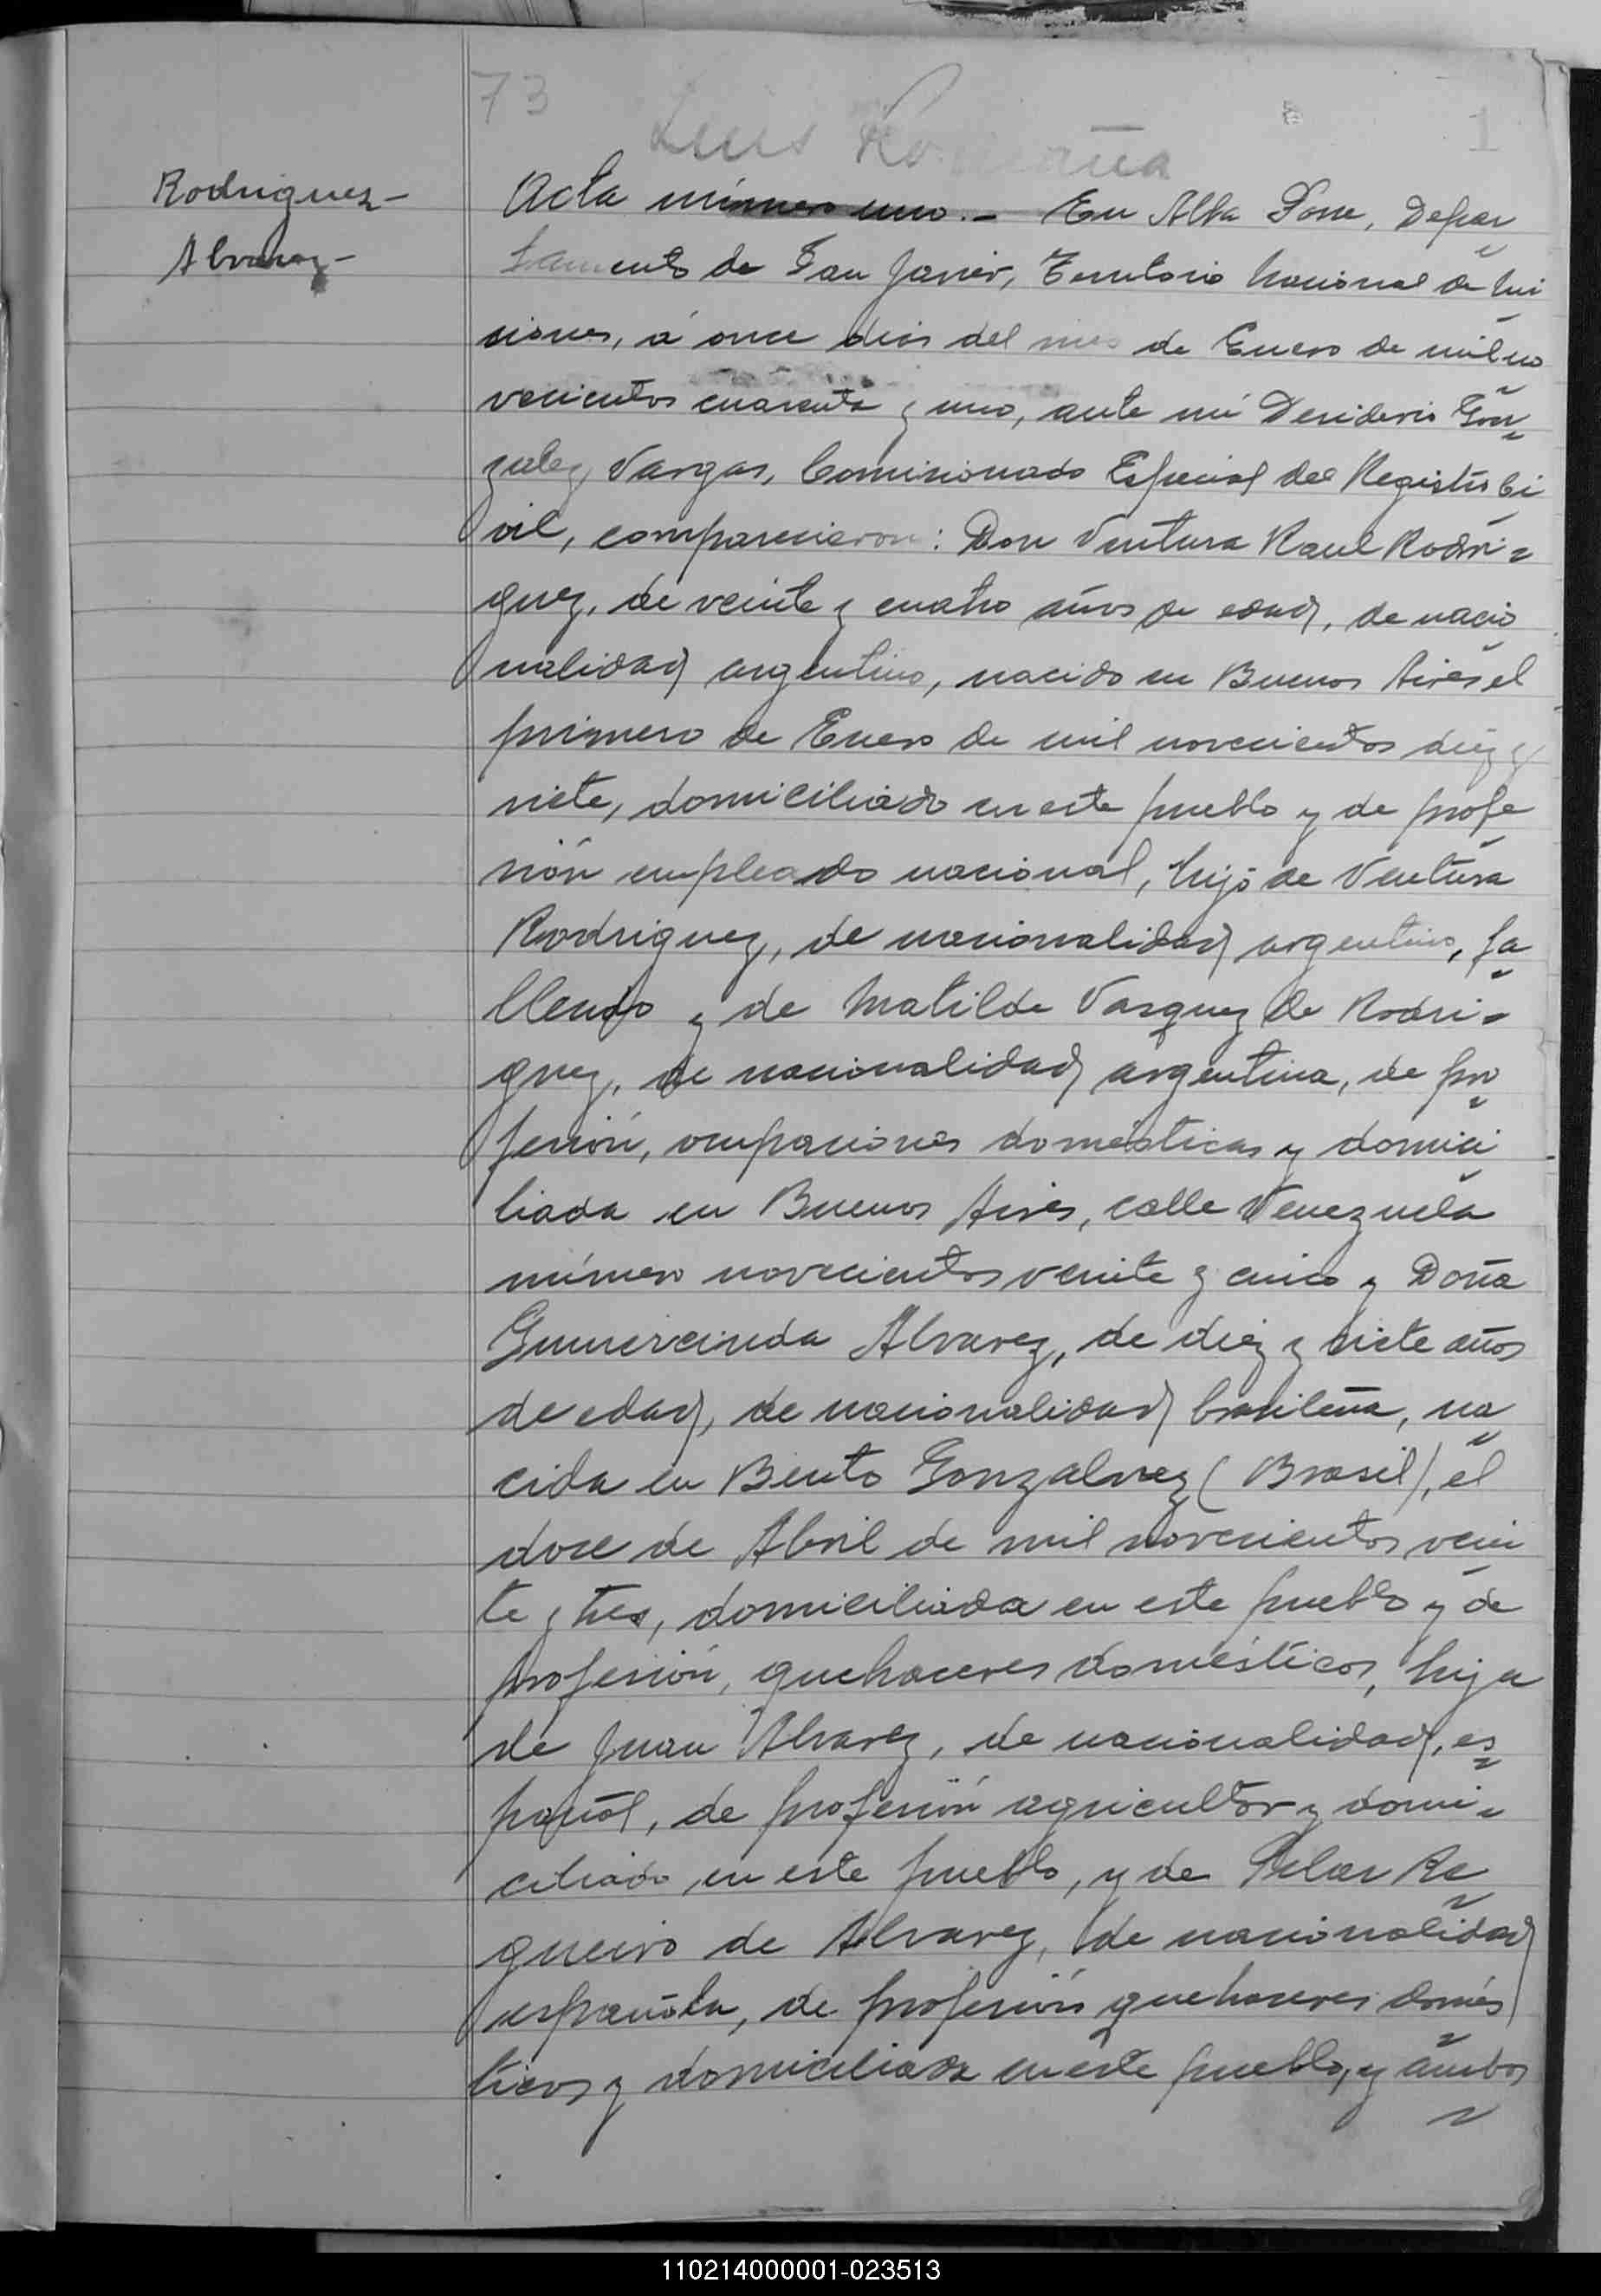 73
Luis
1
Rodriguez-
Alvarez-
Acta número uno.- En Alba Posse, Depar
tamento de San Javier, Territorio Nacional de Mi
siones, á once dias del mes de Enero de mil no
vecientos cuarenta y uno, ante mí Desiderio Gon
zalez Vargas, Comisionado Especial del Registro Ci
vil, comparecieron: Don Ventura Raul Rodri-
guez, de veinte y cuatro años de edad, de nacio
nalidad argentino, nacido en Buenos Aires el
primero de Enero de mil novecientos diez y
siete, domiciliado en este pueblo y de profe
sión empleado nacional, hijo de Ventura
Rodriguez, de nacionalidad argentino, fa
llecido y de Matilde Vasquez de Rodri-
guez, de nacionalidad argentina, de pro
fesión, ocupaciones domésticas y domici
liada en Buenos Aires, calle Venezuela
número novecientos veinte y cinco y Doña
Gumercinda Alvarez, de diez y siete años
de edad, de nacionalidad brasileña, na
cida en Bento Gonzalvez (Brasil), el
doce de Abril de mil novecientos vein
te y tres, domiciliada en este pueblo y de
profesión, quehaceres domésticos, hija
de Juan Alvarez, de nacionalidad, es
pañol, de profesión agricultor y domi-
ciliado en este pueblo, y de Pilar Re
gueiro de Alvarez, de nacionalidad
española, de profesión quehaceres domés
ticos y domiciliada en este pueblo, y ambos
110214000001-023513